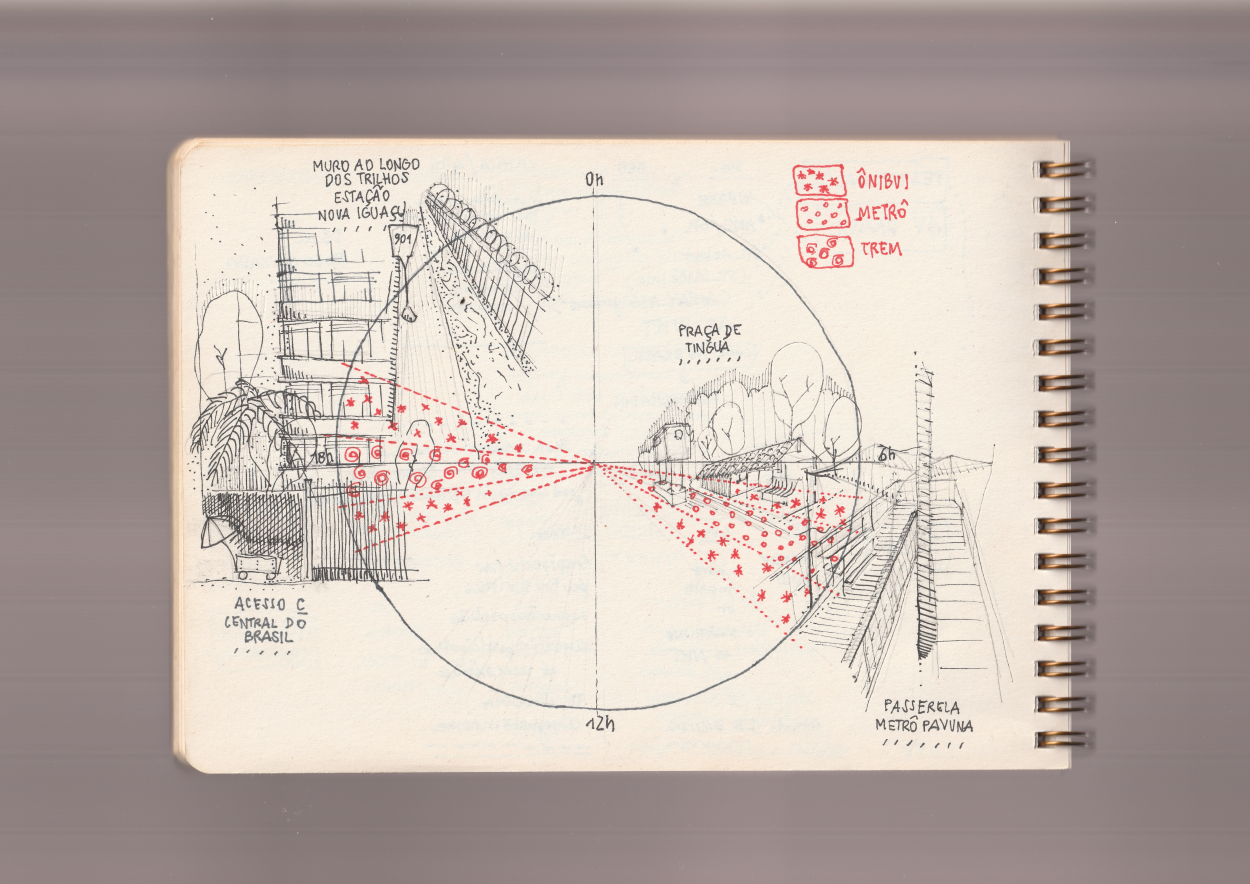 MURO AO LONGO
DOS TRILHOS
ESTAÇÃO
NOVA IGUAÇU
901
0h
ÔNIBUS
METRÔ
TREM
PRAÇA DE
TINGUA
18h
6h
ACESSO C
CENTRAL DO
BRASIL
12h
PASSERELA
METRÔ PAVUNA